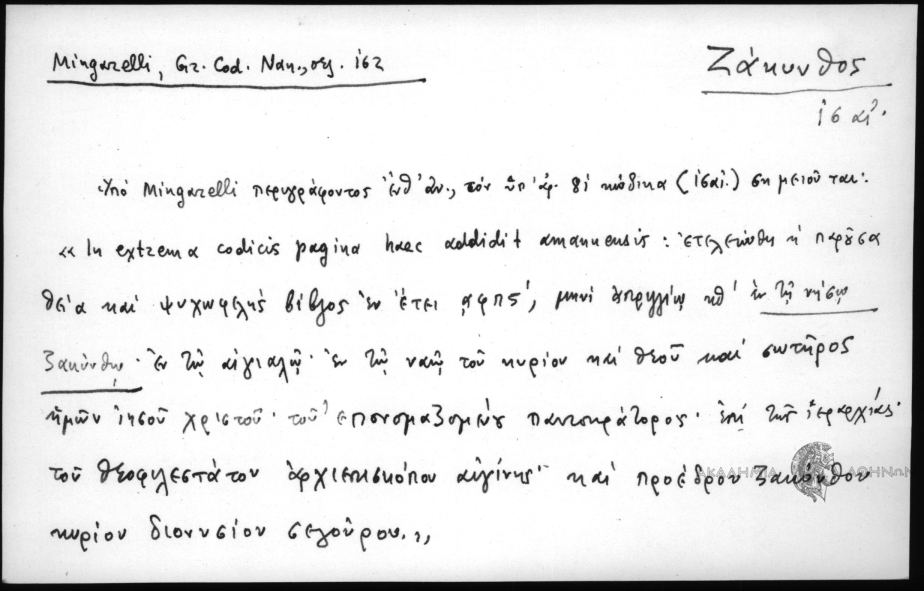 Mingarelli, Gr. Cod. Nan., σελ. 162
Ζάκυνθος
ις αἰ.
Ὑπό Mingarelli περιγράφοντος ἐνθ' ἀν., τόν ὑπ' ἀρ. 81 κώδικα (ιςαἰ.) σημειοῦται:
«In extrema codicis pagina haec addidit amanuensis: ἐτελειώθη ἡ παροῦσα
θεία και ψυχωφελής βίβλος ἐν ἔτει ͵αφπς', μηνί ἀπριλίῳ κθ' ἐν τῇ νήσῳ
Ζακύνθῳ. ἐν τῷ αἰγιαλῷ. ἐν τῷ ναῷ τοῦ κυρίου καί θεοῦ καί σωτῆρος
ἡμῶν ἰησοῦ χριστοῦ. τοῦ ἐπονομαζομένου παντοκράτορος. ἐπί τῆς ἱεραρχίας
τοῦ θεοφιλεστάτου ἀρχιεπισκόπου αἰγίνης καί προέδρου Ζακύνθου
κυρίου διονυσίου σεγούρου.»
ΑΚΑΔΗΜΙΑ ΑΘΗΝΩΝ